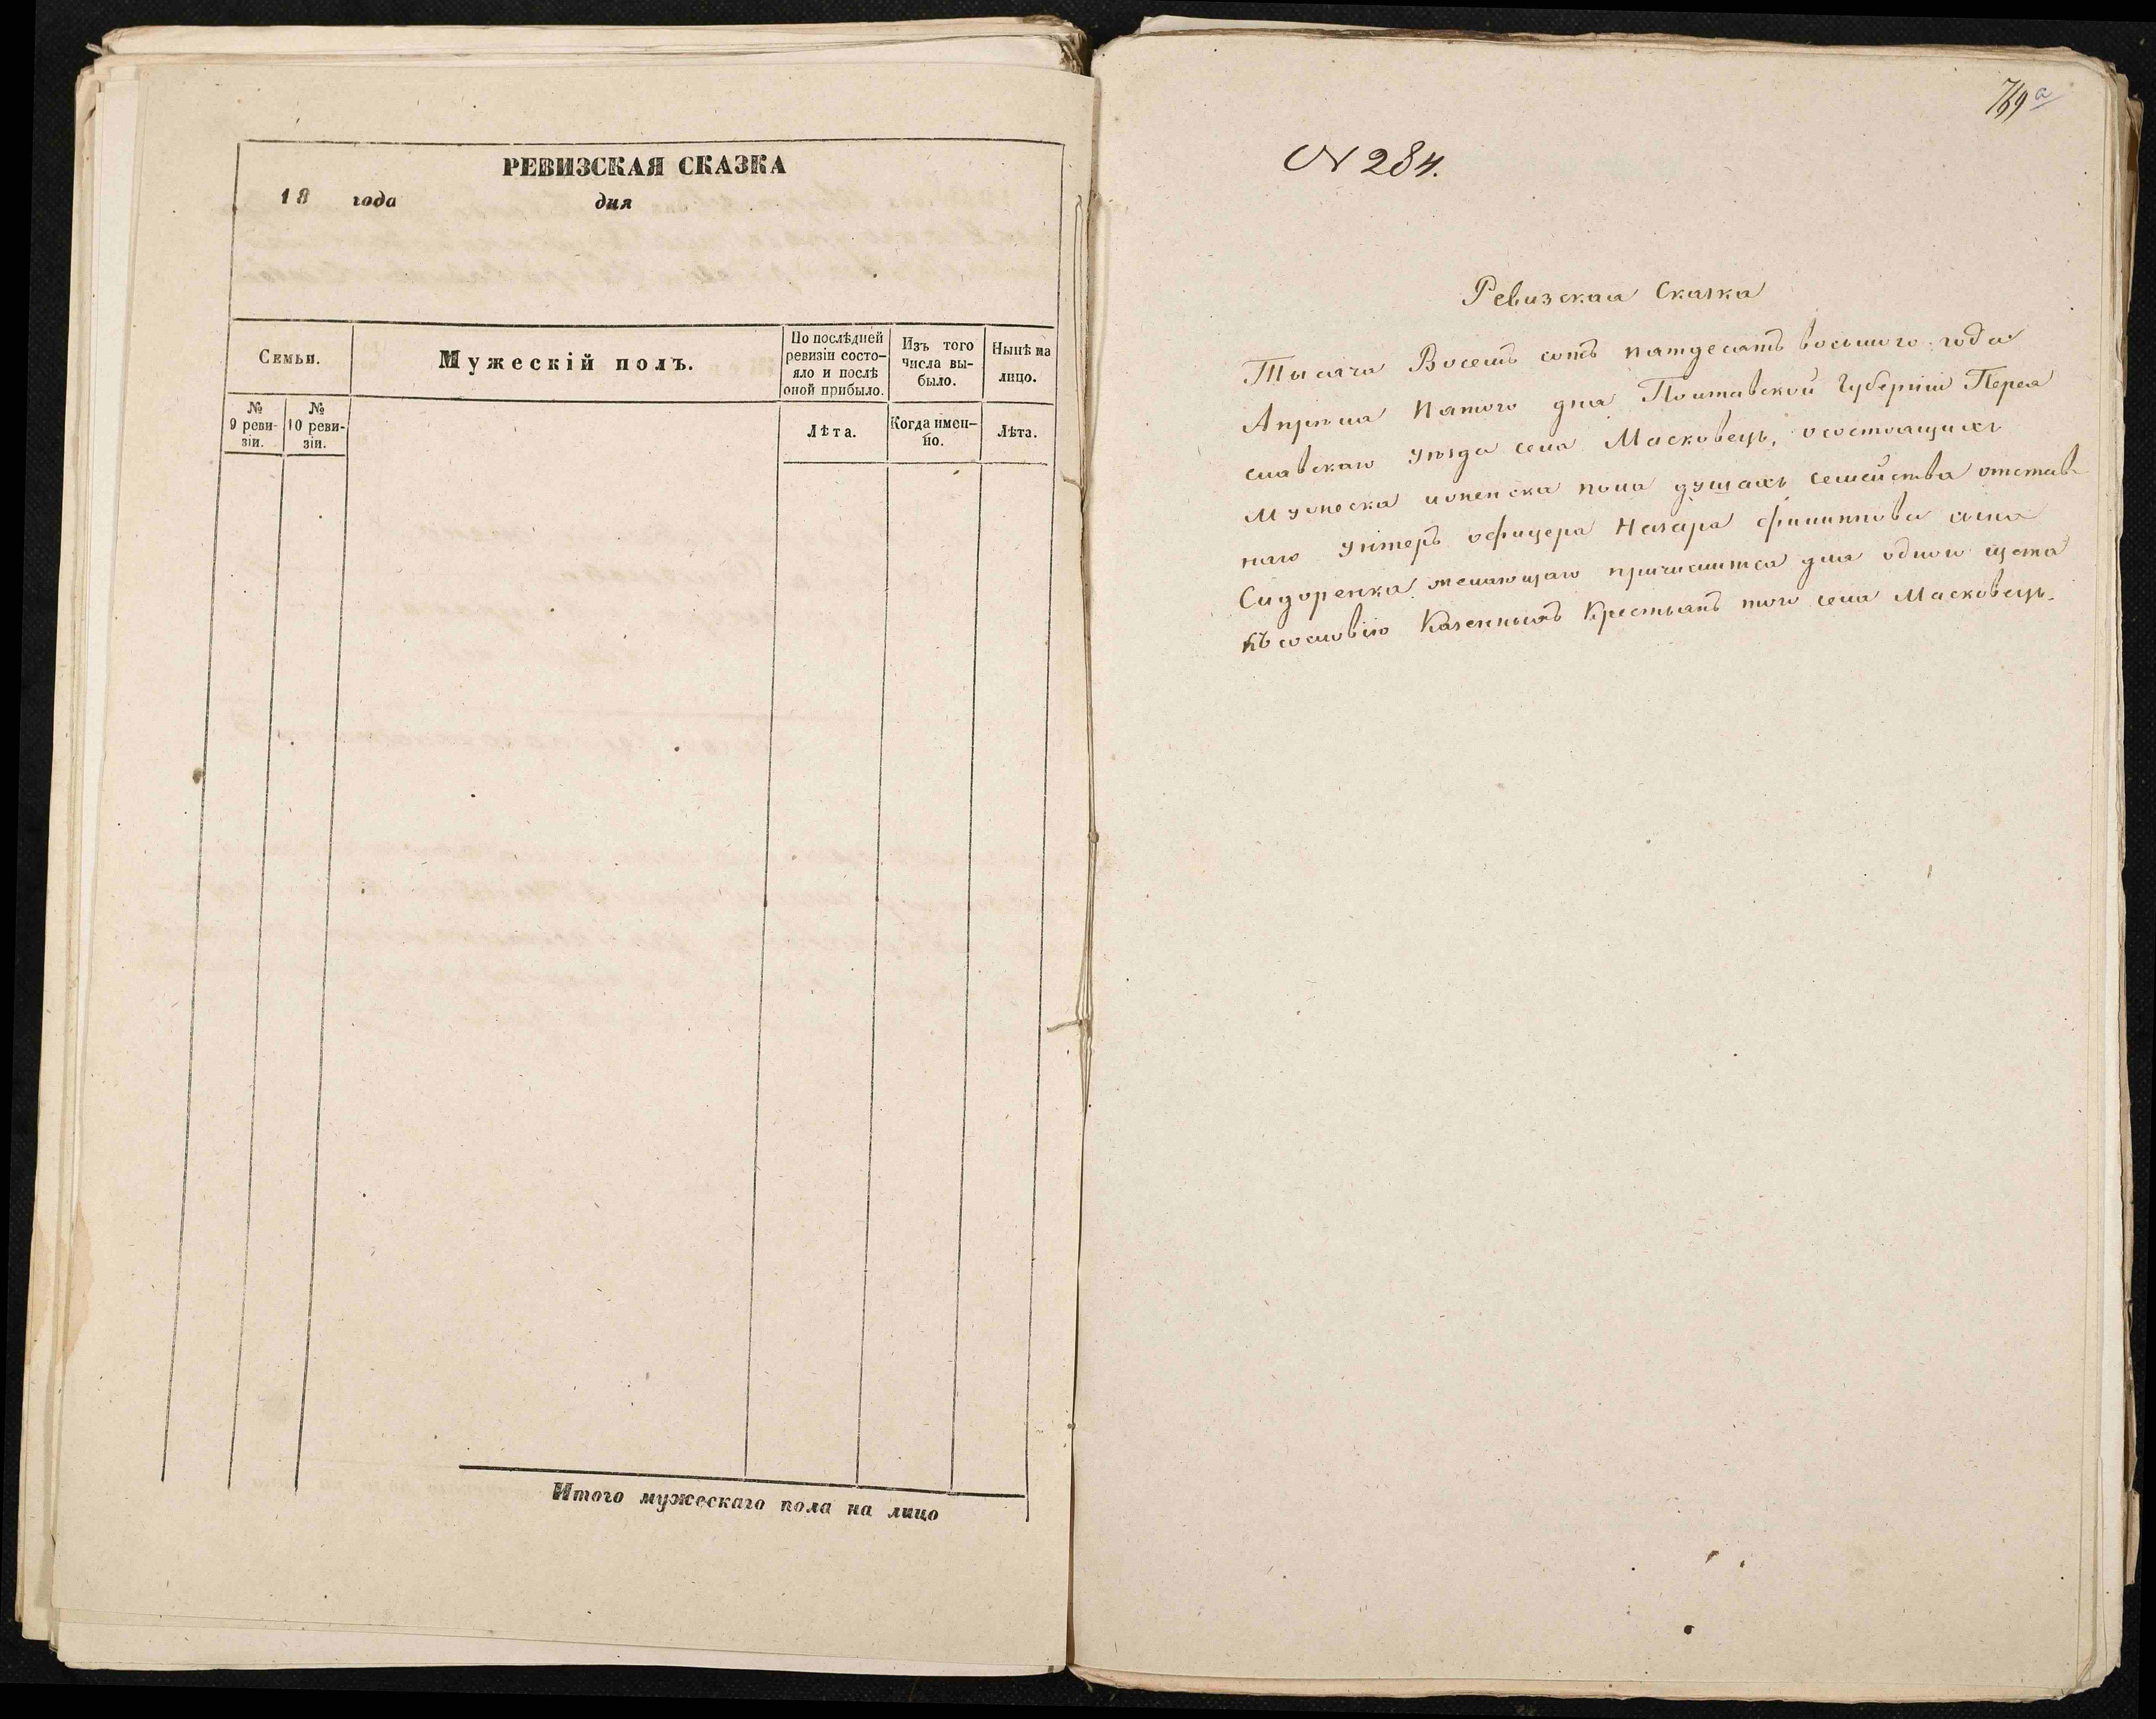 РЕВИЗСКАЯ СКАЗКА
18 года дня
Семьи.
Мужескій полъ.
По послѣдней
ревизіи состо-
яло и послѣ
оной прибыло.
Изъ того
числа вы-
было.
Нынѣ на
лицо.
№
9 реви-
зіи.
№
10 реви-
зіи.
Лѣта.
Когда имен-
но.
Лѣта.
Итого мужескаго пола на лицо
769 а
N 284.
Ревизская Сказка
Тысяча Восемъ сотъ пятдесятъ восьмого года
Апрѣля Пятого дня Полтавской Губерніи Перея
славскаго Уѣзда села Масковецъ, о состоящихъ
мужеска иженска пола душахъ семейства отстав
наго Унтеръ офицера Назара Филиппова сына
Сидоренка желающаго причислится для одного щета
къ сословію Казенныхъ Крестьянъ того села Масковецъ.